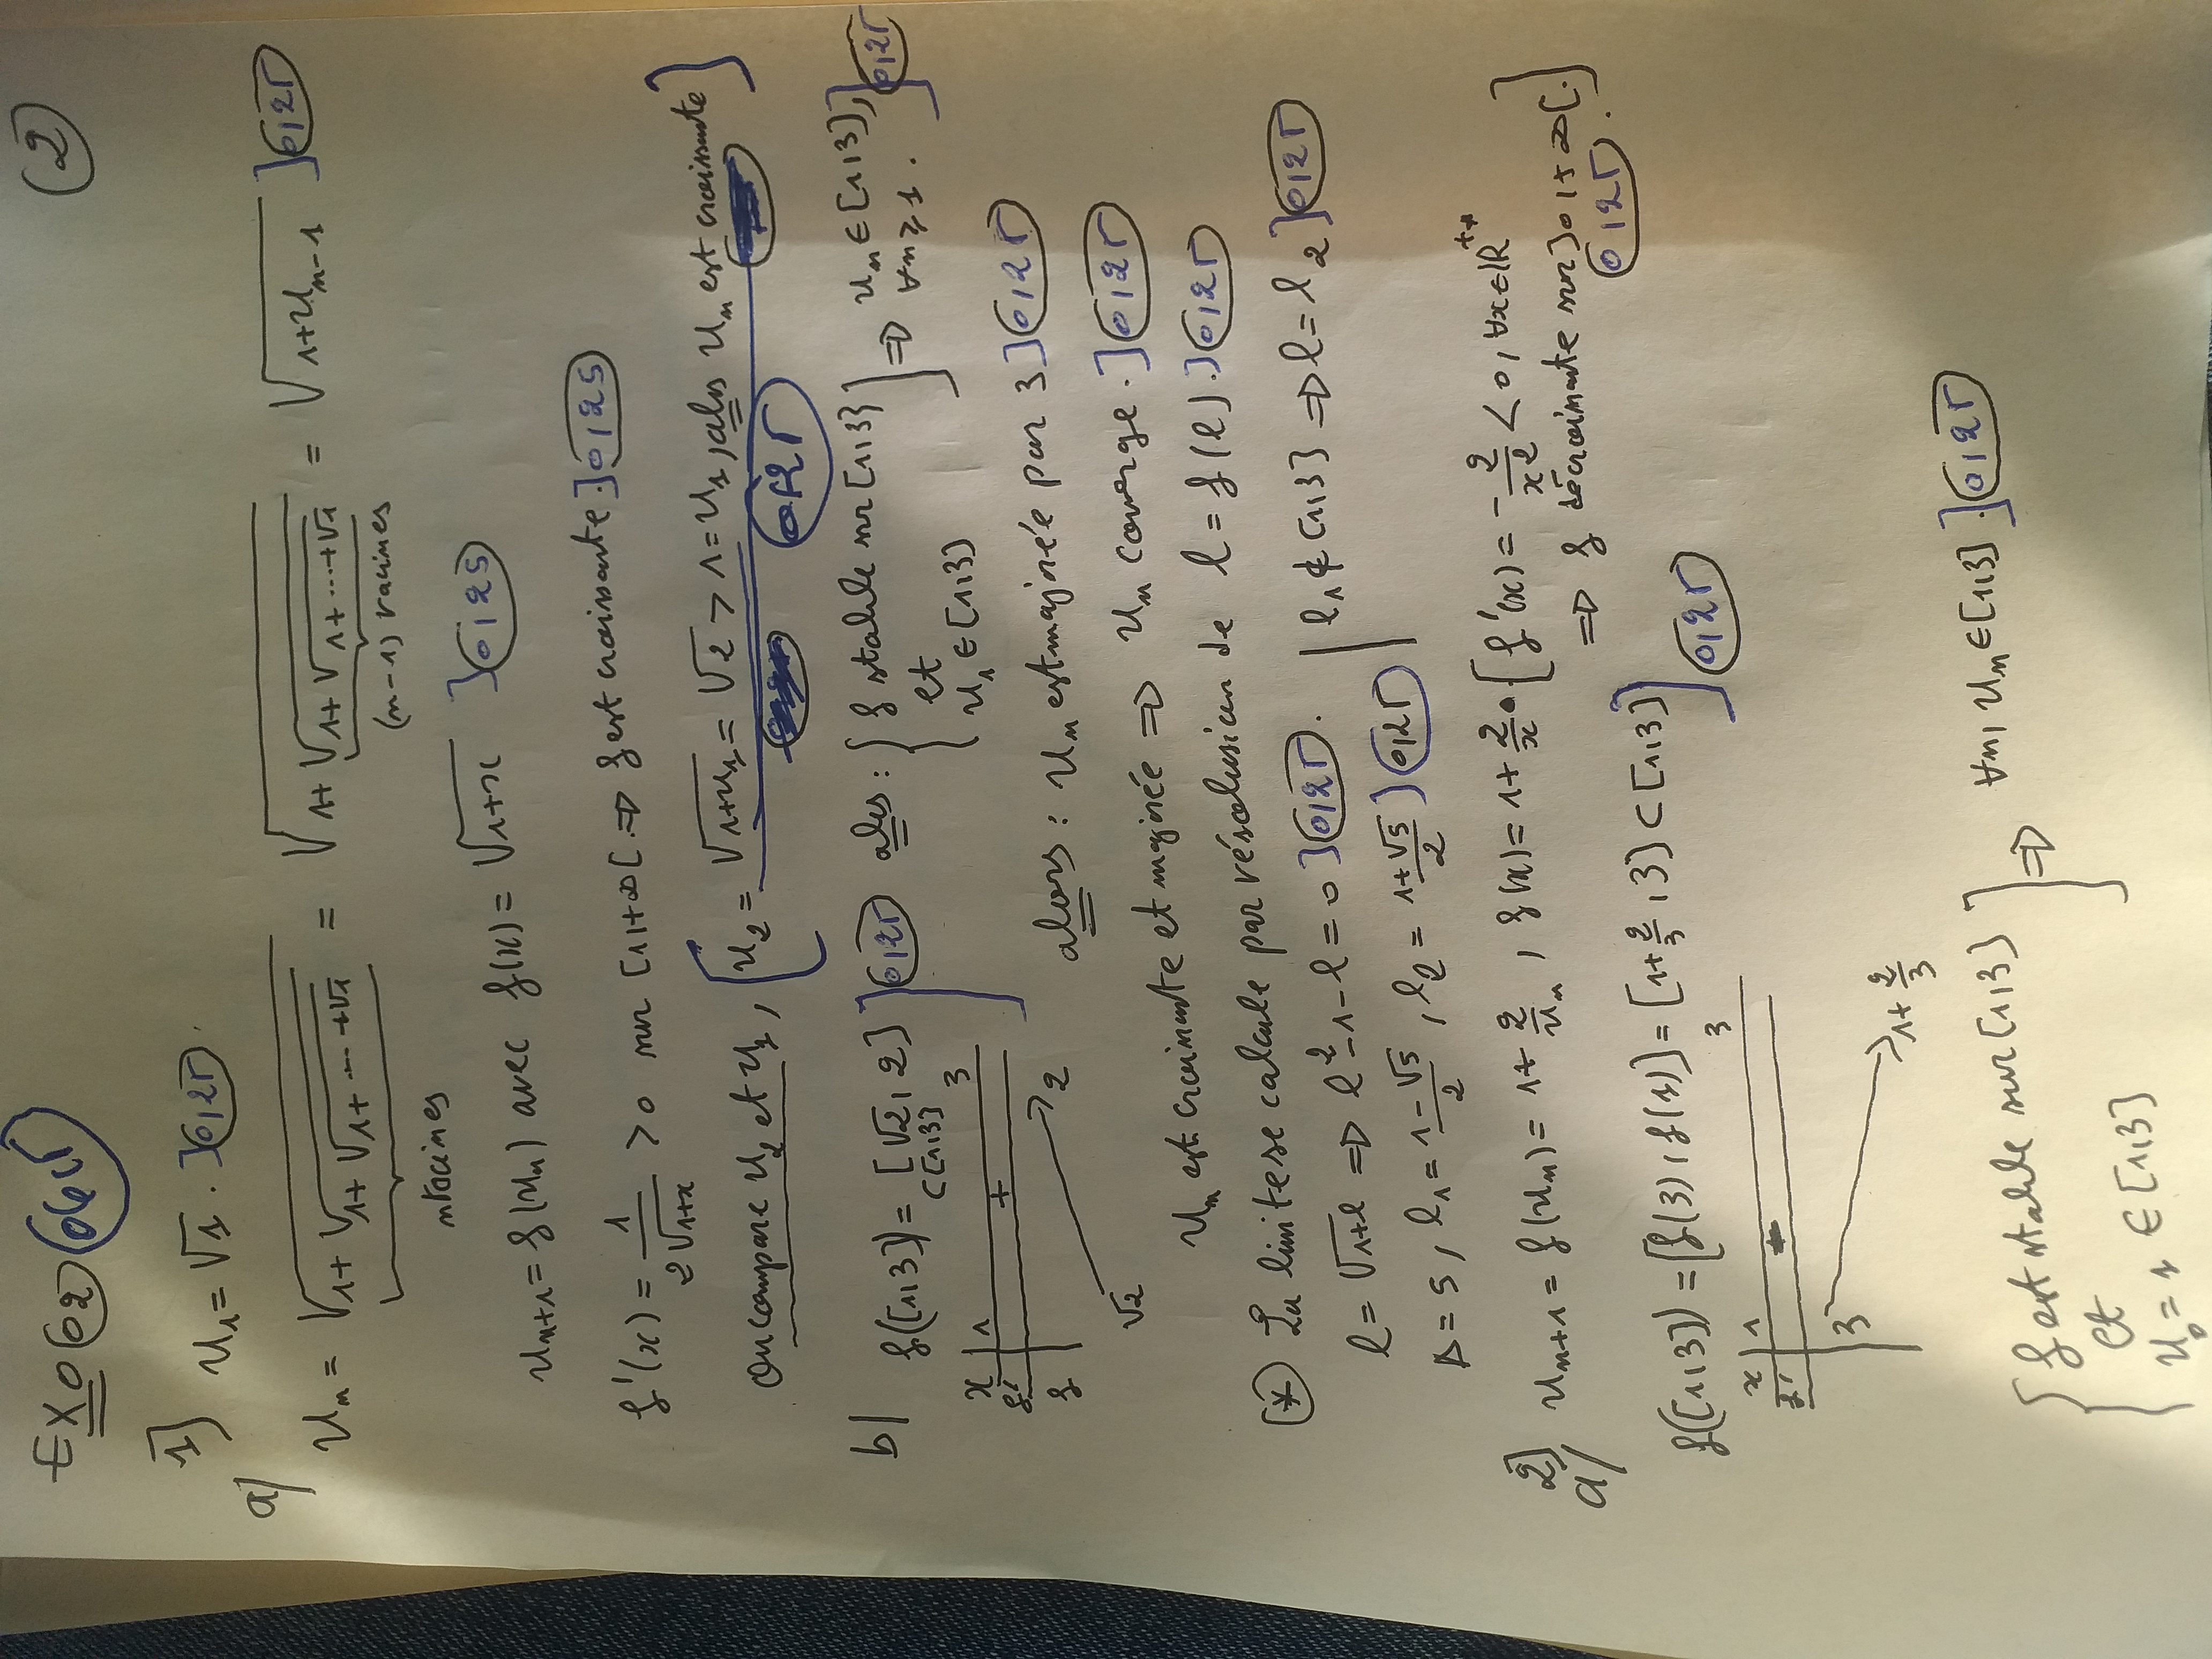 ②
EXO 02 06 pt
1) u₁ = √1 . ] 0,25
a) uₙ = √(1+√(1+√(1+....+√1))) = √(1+√(1+√(1+....+√1))) = √(1+uₙ₋₁) ] 0,25
n racines (n-1) racines
uₙ₊₁ = f(uₙ) avec f(x) = √(1+x) ] 0,25
f'(x) = 1/(2√(1+x)) > 0 sur [1,+∞[. ⇒ f est croissante. ] 0,25
On compare u₂ et u₁, [u₂ = √(1+u₁) = √2 > 1 = u₁, alors uₙ est croissante]
0,25
b) f([1,3]) = [√2, 2] ] 0,25 alors : { f stable sur [1,3] ] ⇒ uₙ ∈ [1,3], ] 0,25
⊂ [1,3] et ∀n ≥ 1.
u₁ ∈ [1,3]
x 1 3
f' +
f √2 → 2
alors : uₙ est majorée par 3 ] 0,25
uₙ est croissante et majorée ⇒ uₙ converge. ] 0,25
(*) La limite se calcule par résolution de l = f(l). ] 0,25
l = √(1+l) ⇒ l² - 1 - l = 0 ] 0,25. | l₁ ∉ [1,3] ⇒ l = l₂ ] 0,25
Δ = 5, l₁ = (1-√5)/2, l₂ = (1+√5)/2 ] 0,25
2)
a) uₙ₊₁ = f(uₙ) = 1+2/uₙ, f(x) = 1+2/x. [f'(x) = -2/x² < 0, ∀x∈ℝ*⁺
⇒ f décroissante sur ]0,+∞[. ]
0,25.
f([1,3]) = [f(3), f(1)] = [1+2/3, 3] ⊂ [1,3] ] 0,25
x 1 3
f' -
3 → 1+2/3
{ f est stable sur [1,3] ] ⇒ ∀n, uₙ ∈ [1,3]. ] 0,25
et
u₀ = 1 ∈ [1,3]